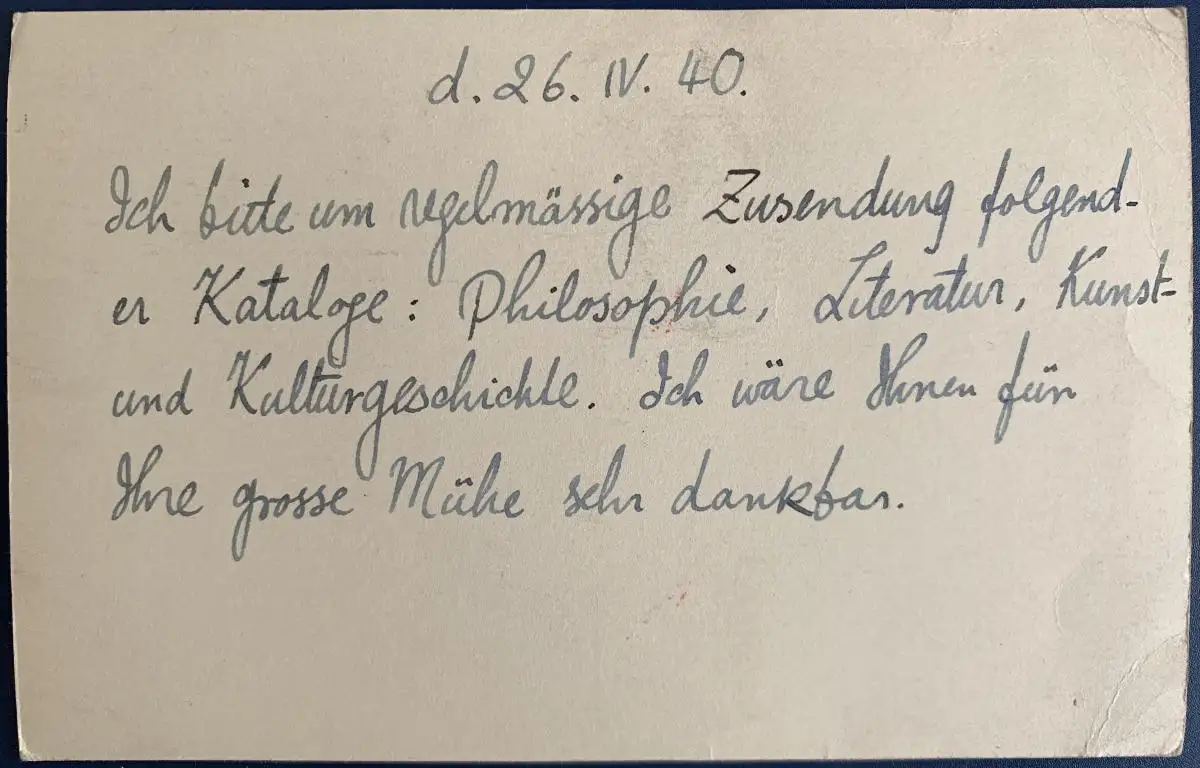 d. 26. IV. 40.
Ich bitte um regelmässige Zusendung folgend-
er Kataloge: Philosophie, Literatur, Kunst-
und Kulturgeschichte. Ich wäre Ihnen für
Ihre grosse Mühe sehr dankbar.